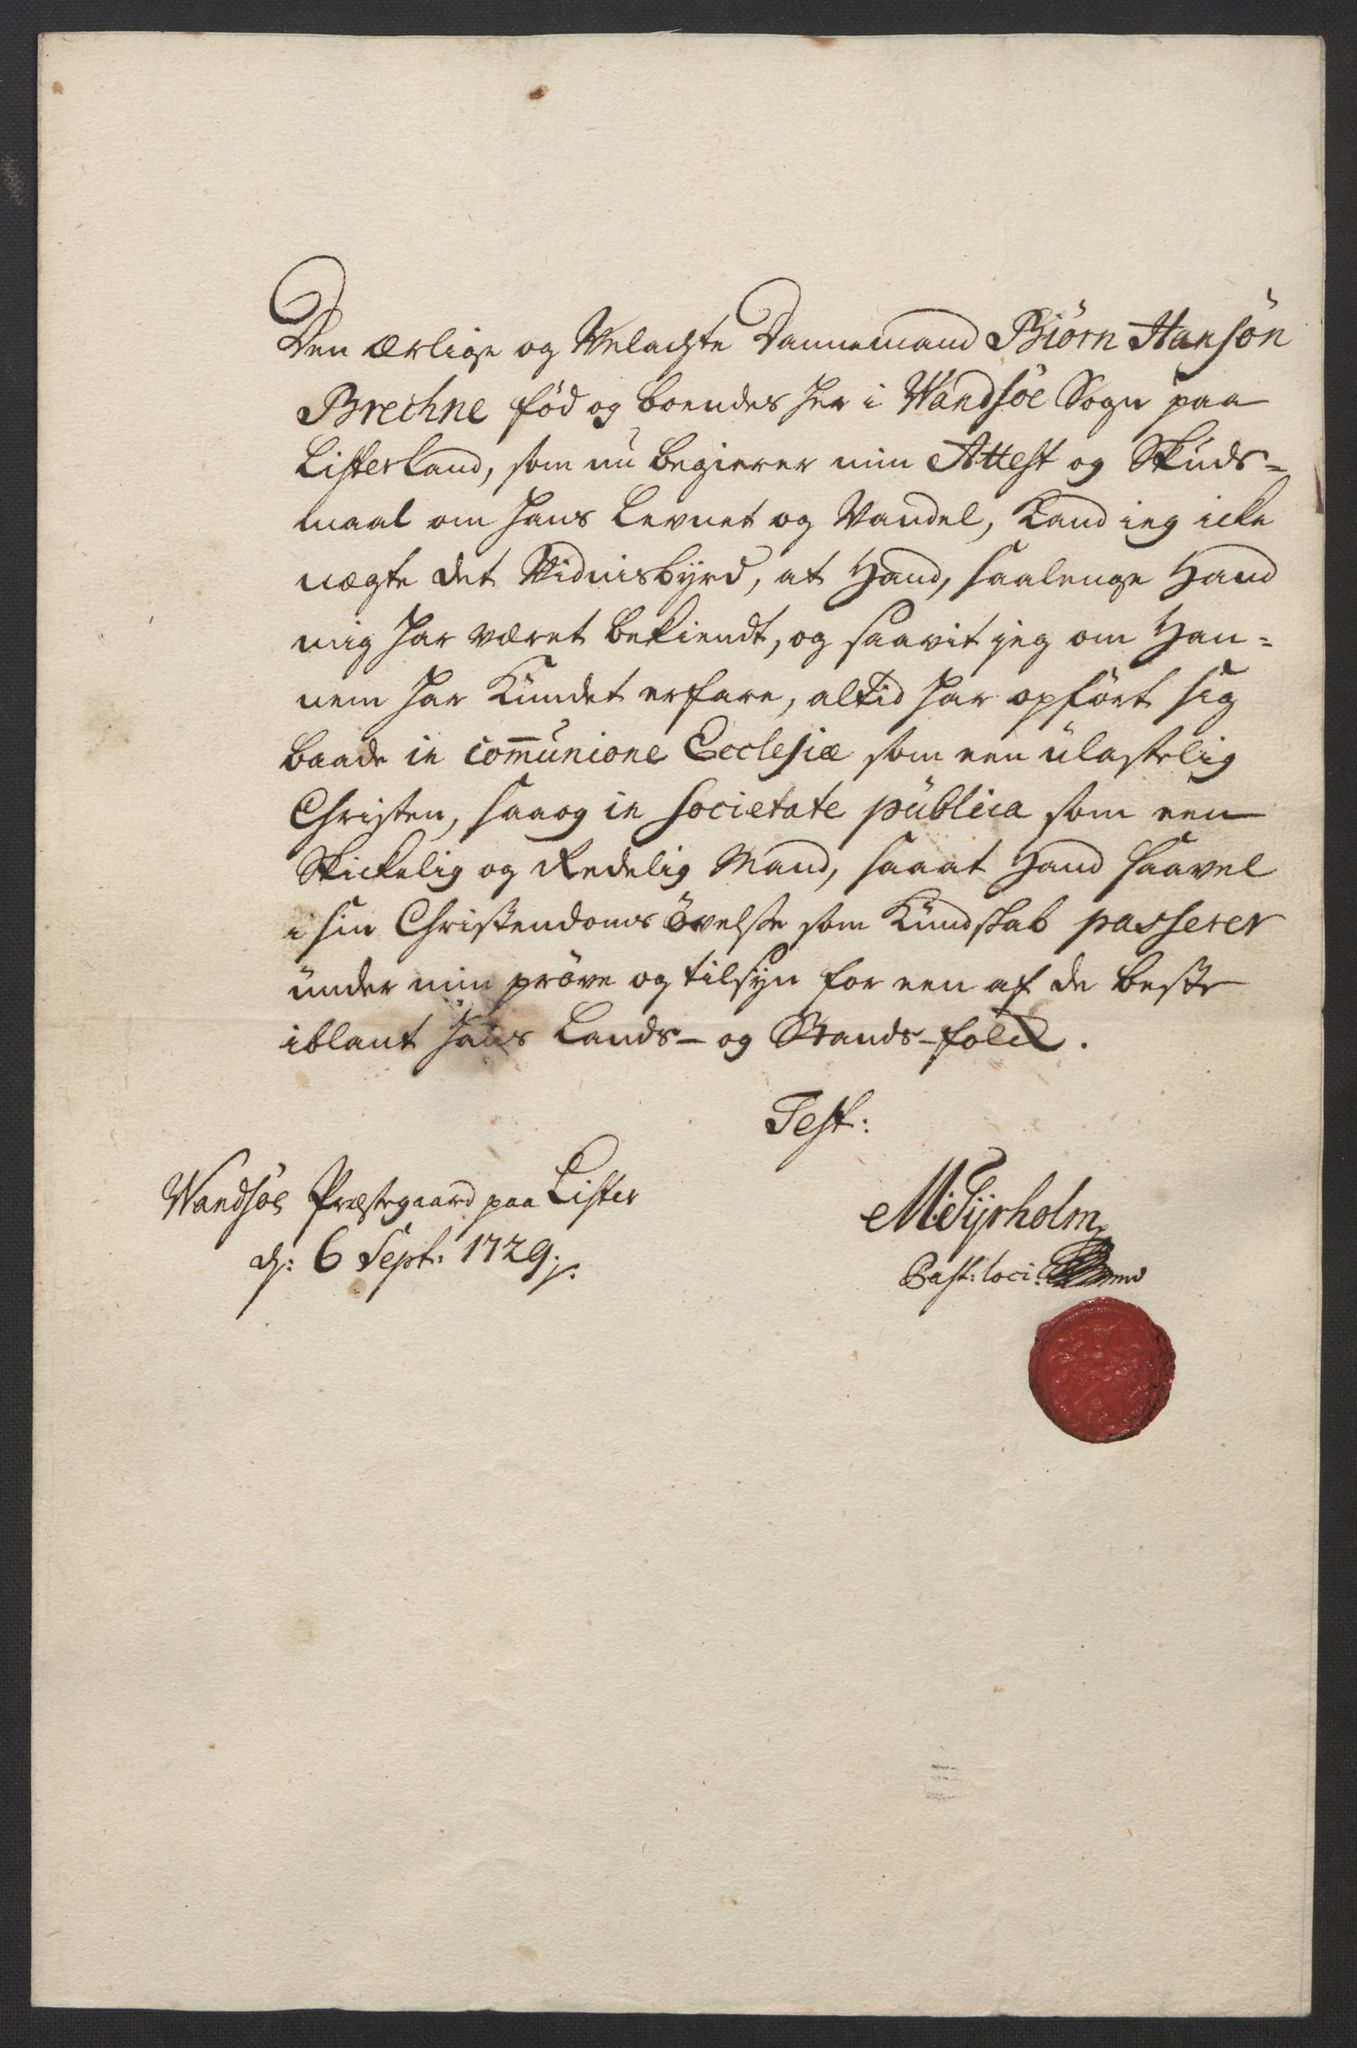 Den ærlige og Velachte Dannemand Biörn Hansön
Brechne fød og boendes her i Wandsöe Sogn paa
Listerland, som nu begierer min Attest og Skuds-
maal om hans Levnet og Vandel, Kand ieg icke
nægte det Vidnisbyrd, at Hand, saalenge Hand
mig har været bekiendt, og saavit jeg om Han-
nem har Kundet erfare, altid har opført sig
baade in communione Ecclesiæ som een ulastelig
Christen, saaog in societate publica som een
Skickelig og Redelig Mand, saaat Hand saavel
i sin Christendoms øvelse som Kundskab passerer
under min prøve og tilsyn for een af de beste
iblant hans Lands- og Stands-folck.
Test:
Wandsöe Præstegaard paa Lister
d: 6 Sept: 1729.
M: Tyrholm
Past: loci: